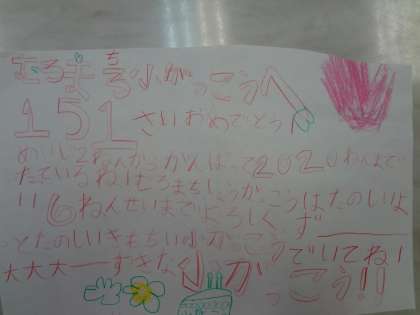 むろまち小がっこうへ
151さいおめでとう
めいじ2ねんからがんばって2020ねんまで
たっているね!!むろまちしょうがっこうはたのしいよ
!!6ねんせいまでよろしく ず
っとたのしいきもちい小がっこうでいてね!
大大大ーすきな小がっこう!!